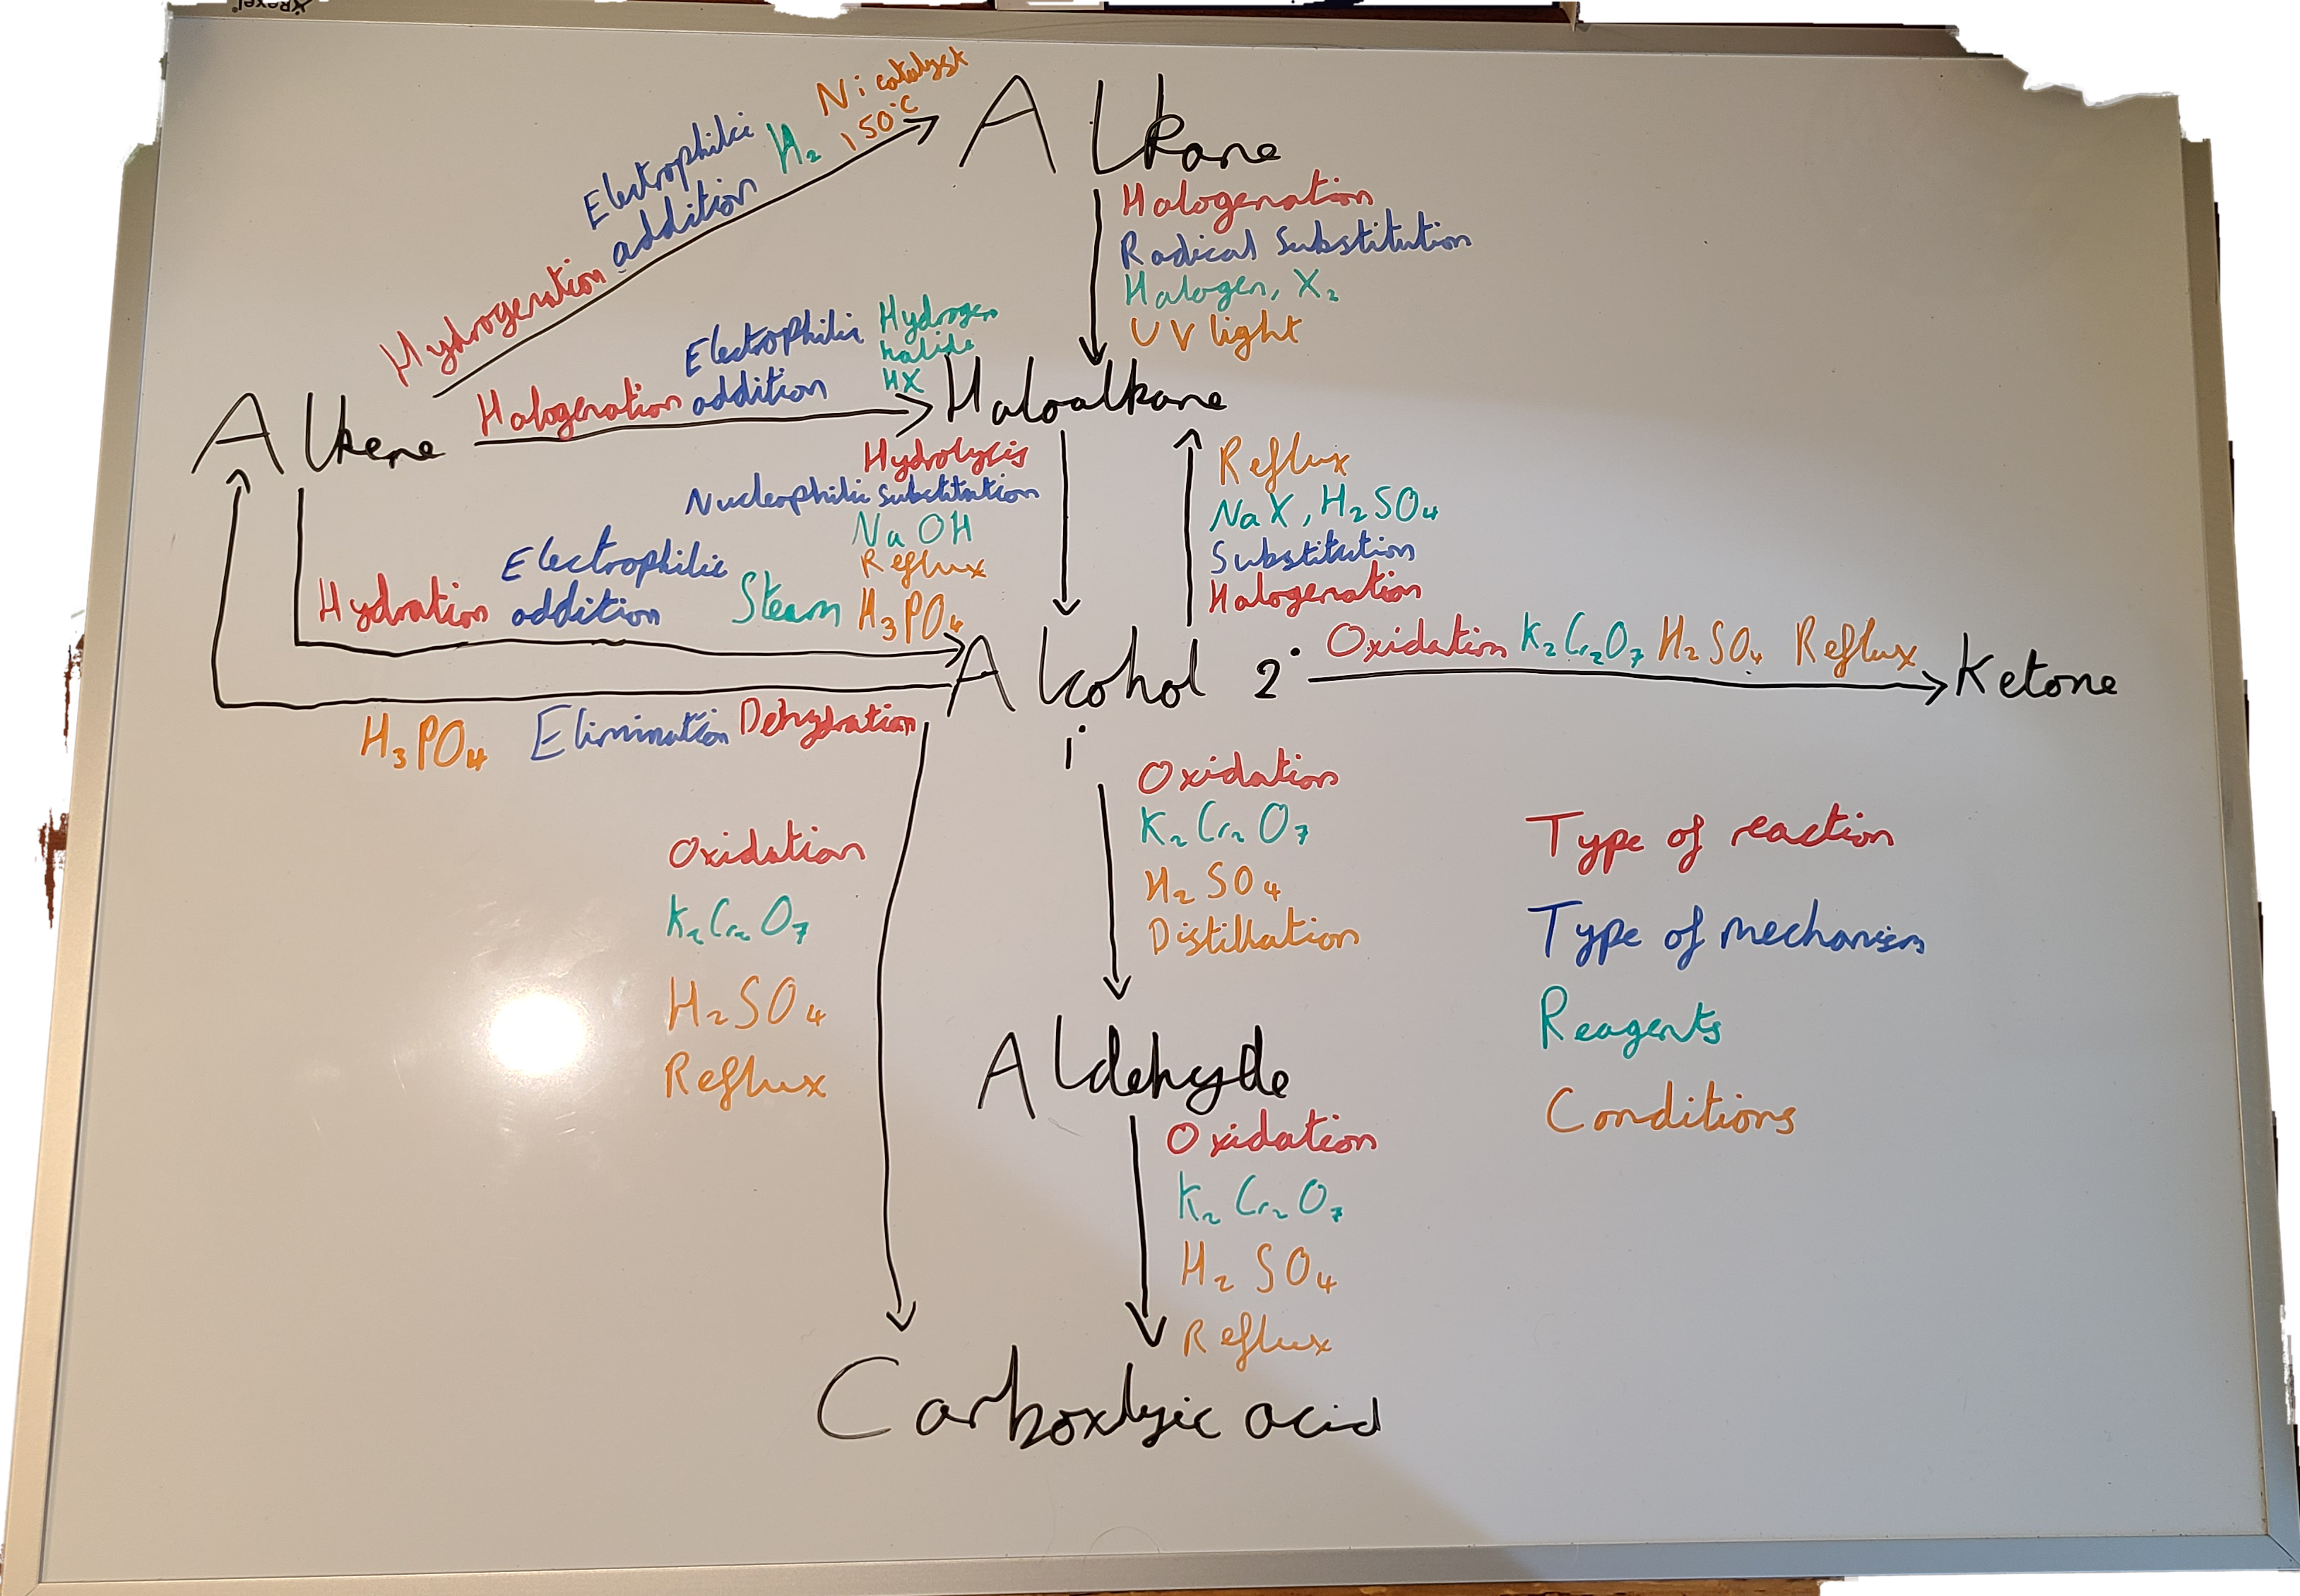 Rexel
Alkane
Ni catalyst
150°C
H₂
Electrophilic
addition
Hydrogenation
Halogenation
Radical Substitution
Halogen, X₂
UV light
Alkene
Halogenation
Electrophilic
addition
Hydrogen
halide
HX
Haloalkane
Hydrolysis
Nucleophilic substitution
NaOH
Reflux
Reflux
NaX, H₂SO₄
Substitution
Halogenation
Hydration
Electrophilic
addition
Steam
H₃PO₄
Alcohol 2°
1°
Oxidation K₂Cr₂O₇ H₂SO₄ Reflux
Ketone
H₃PO₄ Elimination Dehydration
Oxidation
K₂Cr₂O₇
H₂SO₄
Reflux
Oxidation
K₂Cr₂O₇
H₂SO₄
Distillation
Aldehyde
Oxidation
K₂Cr₂O₇
H₂SO₄
Reflux
Carboxlyic acid
Type of reaction
Type of mechanism
Reagents
Conditions